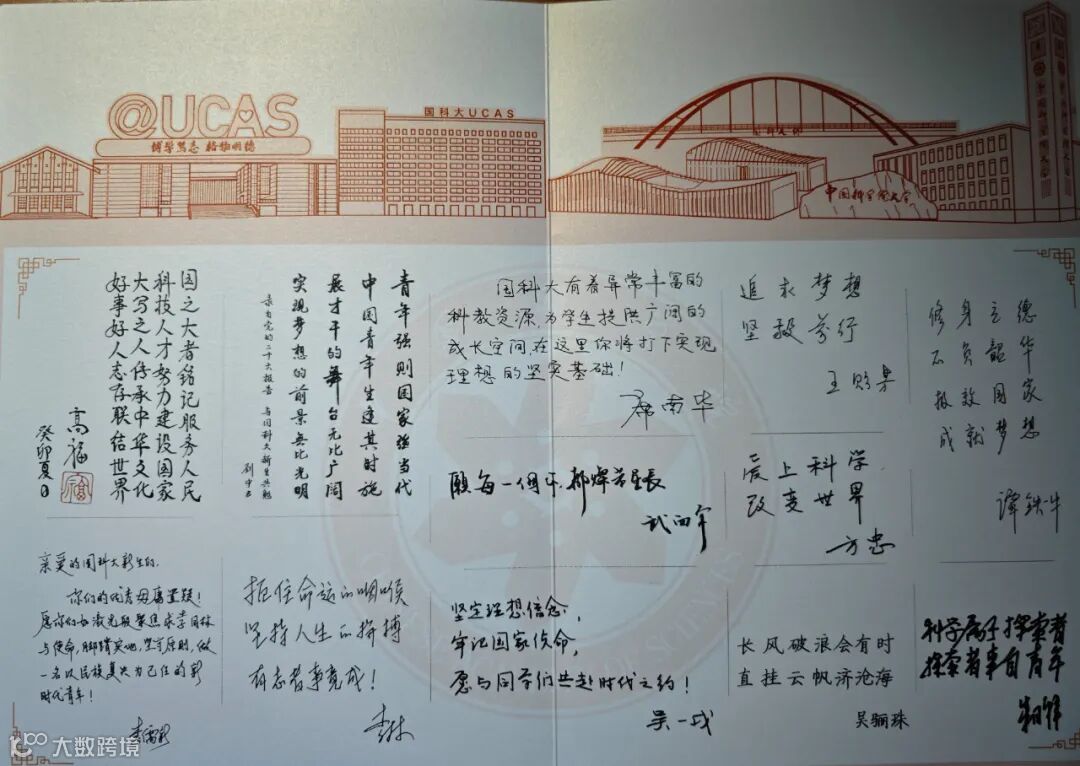 @UCAS
博学笃志 格物明德
国科大UCAS
中国科学院大学
国之大者铭记服务人民
科技人才努力建设国家
大写之人传承中华文化
好事好人志存联结世界
高福
癸卯夏日
青年强则国家强当代
中国青年生逢其时施
展才干的舞台无比广阔
实现梦想的前景无比光明
录自党的二十大报告 与国科大新生共勉
国科大有着异常丰富的
科教资源,为学生提供广阔的
成长空间,在这里你将打下实现
理想的坚实基础!
席南华
追求梦想
坚毅笃行
王贻芳
修身立德
不负韶华
报效国家
成就梦想
谭铁牛
愿每一个你,都灿若星辰
武向平
爱上科学
改变世界
方忠
亲爱的国科大新生们:
你们的优秀毋庸置疑!
愿你们如激光般聚焦求学目标
与使命,脚踏实地,坚守原则,做
一名以民族复兴为己任的新
时代青年!
扼住命运的咽喉
坚持人生的拼搏
有志者事竟成!
坚定理想信念,
牢记国家使命,
愿与同学们共赴时代之约!
吴一戎
长风破浪会有时
直挂云帆济沧海
吴骊珠
科学属于探索者
探索者来自青年
大数跨境